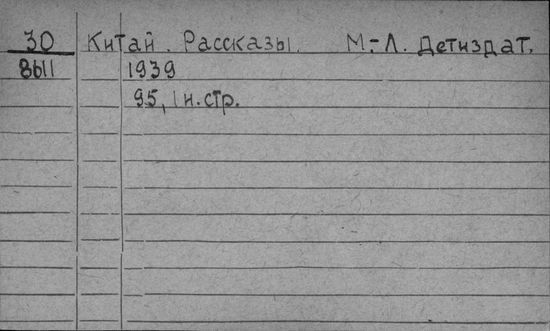 30 Китай. Рассказы. М.-Л. Детиздат.
8Ы11 1939
95, 1 н. стр.